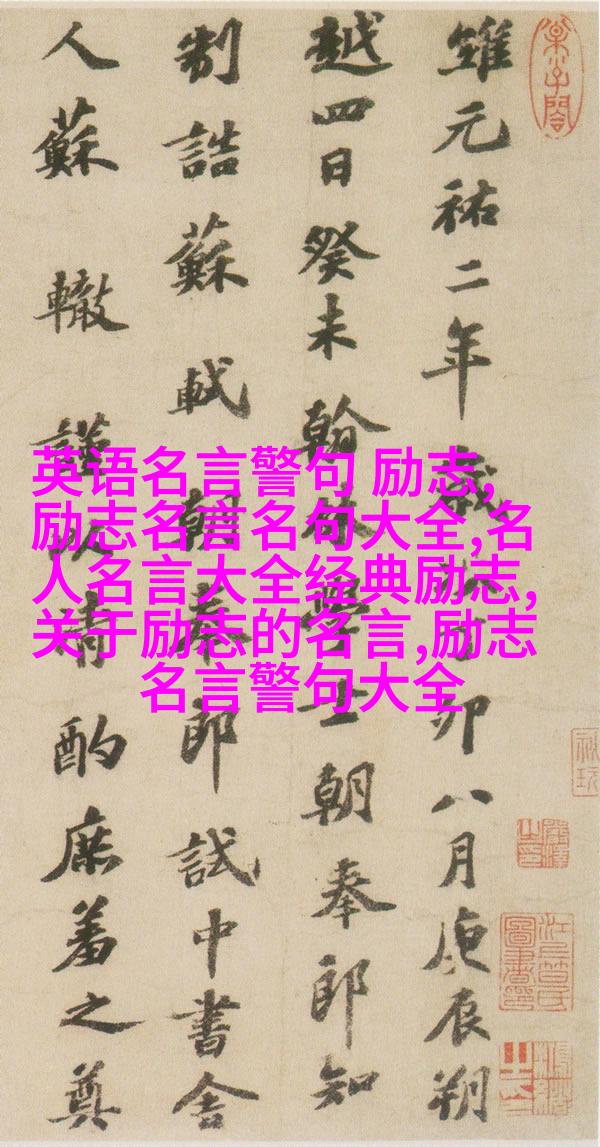 維元祐二年歲次丁卯八月庚辰朔
越四日癸未翰林學士朝奉郎知
制誥蘇軾朝奉郎試中書舍
人蘇轍謹以清酌庶羞之奠
英语名言警句 励志,
励志名言名句大全,名
人名言大全经典励志,
关于励志的名言,励志
名言警句大全